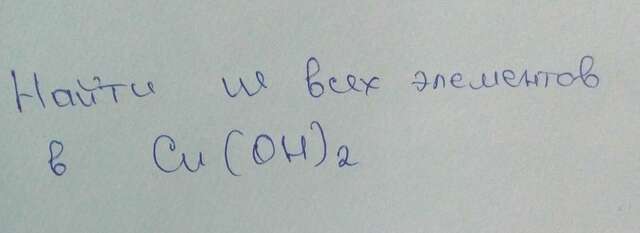 Найти w всех элементов
в Cu(OH)₂